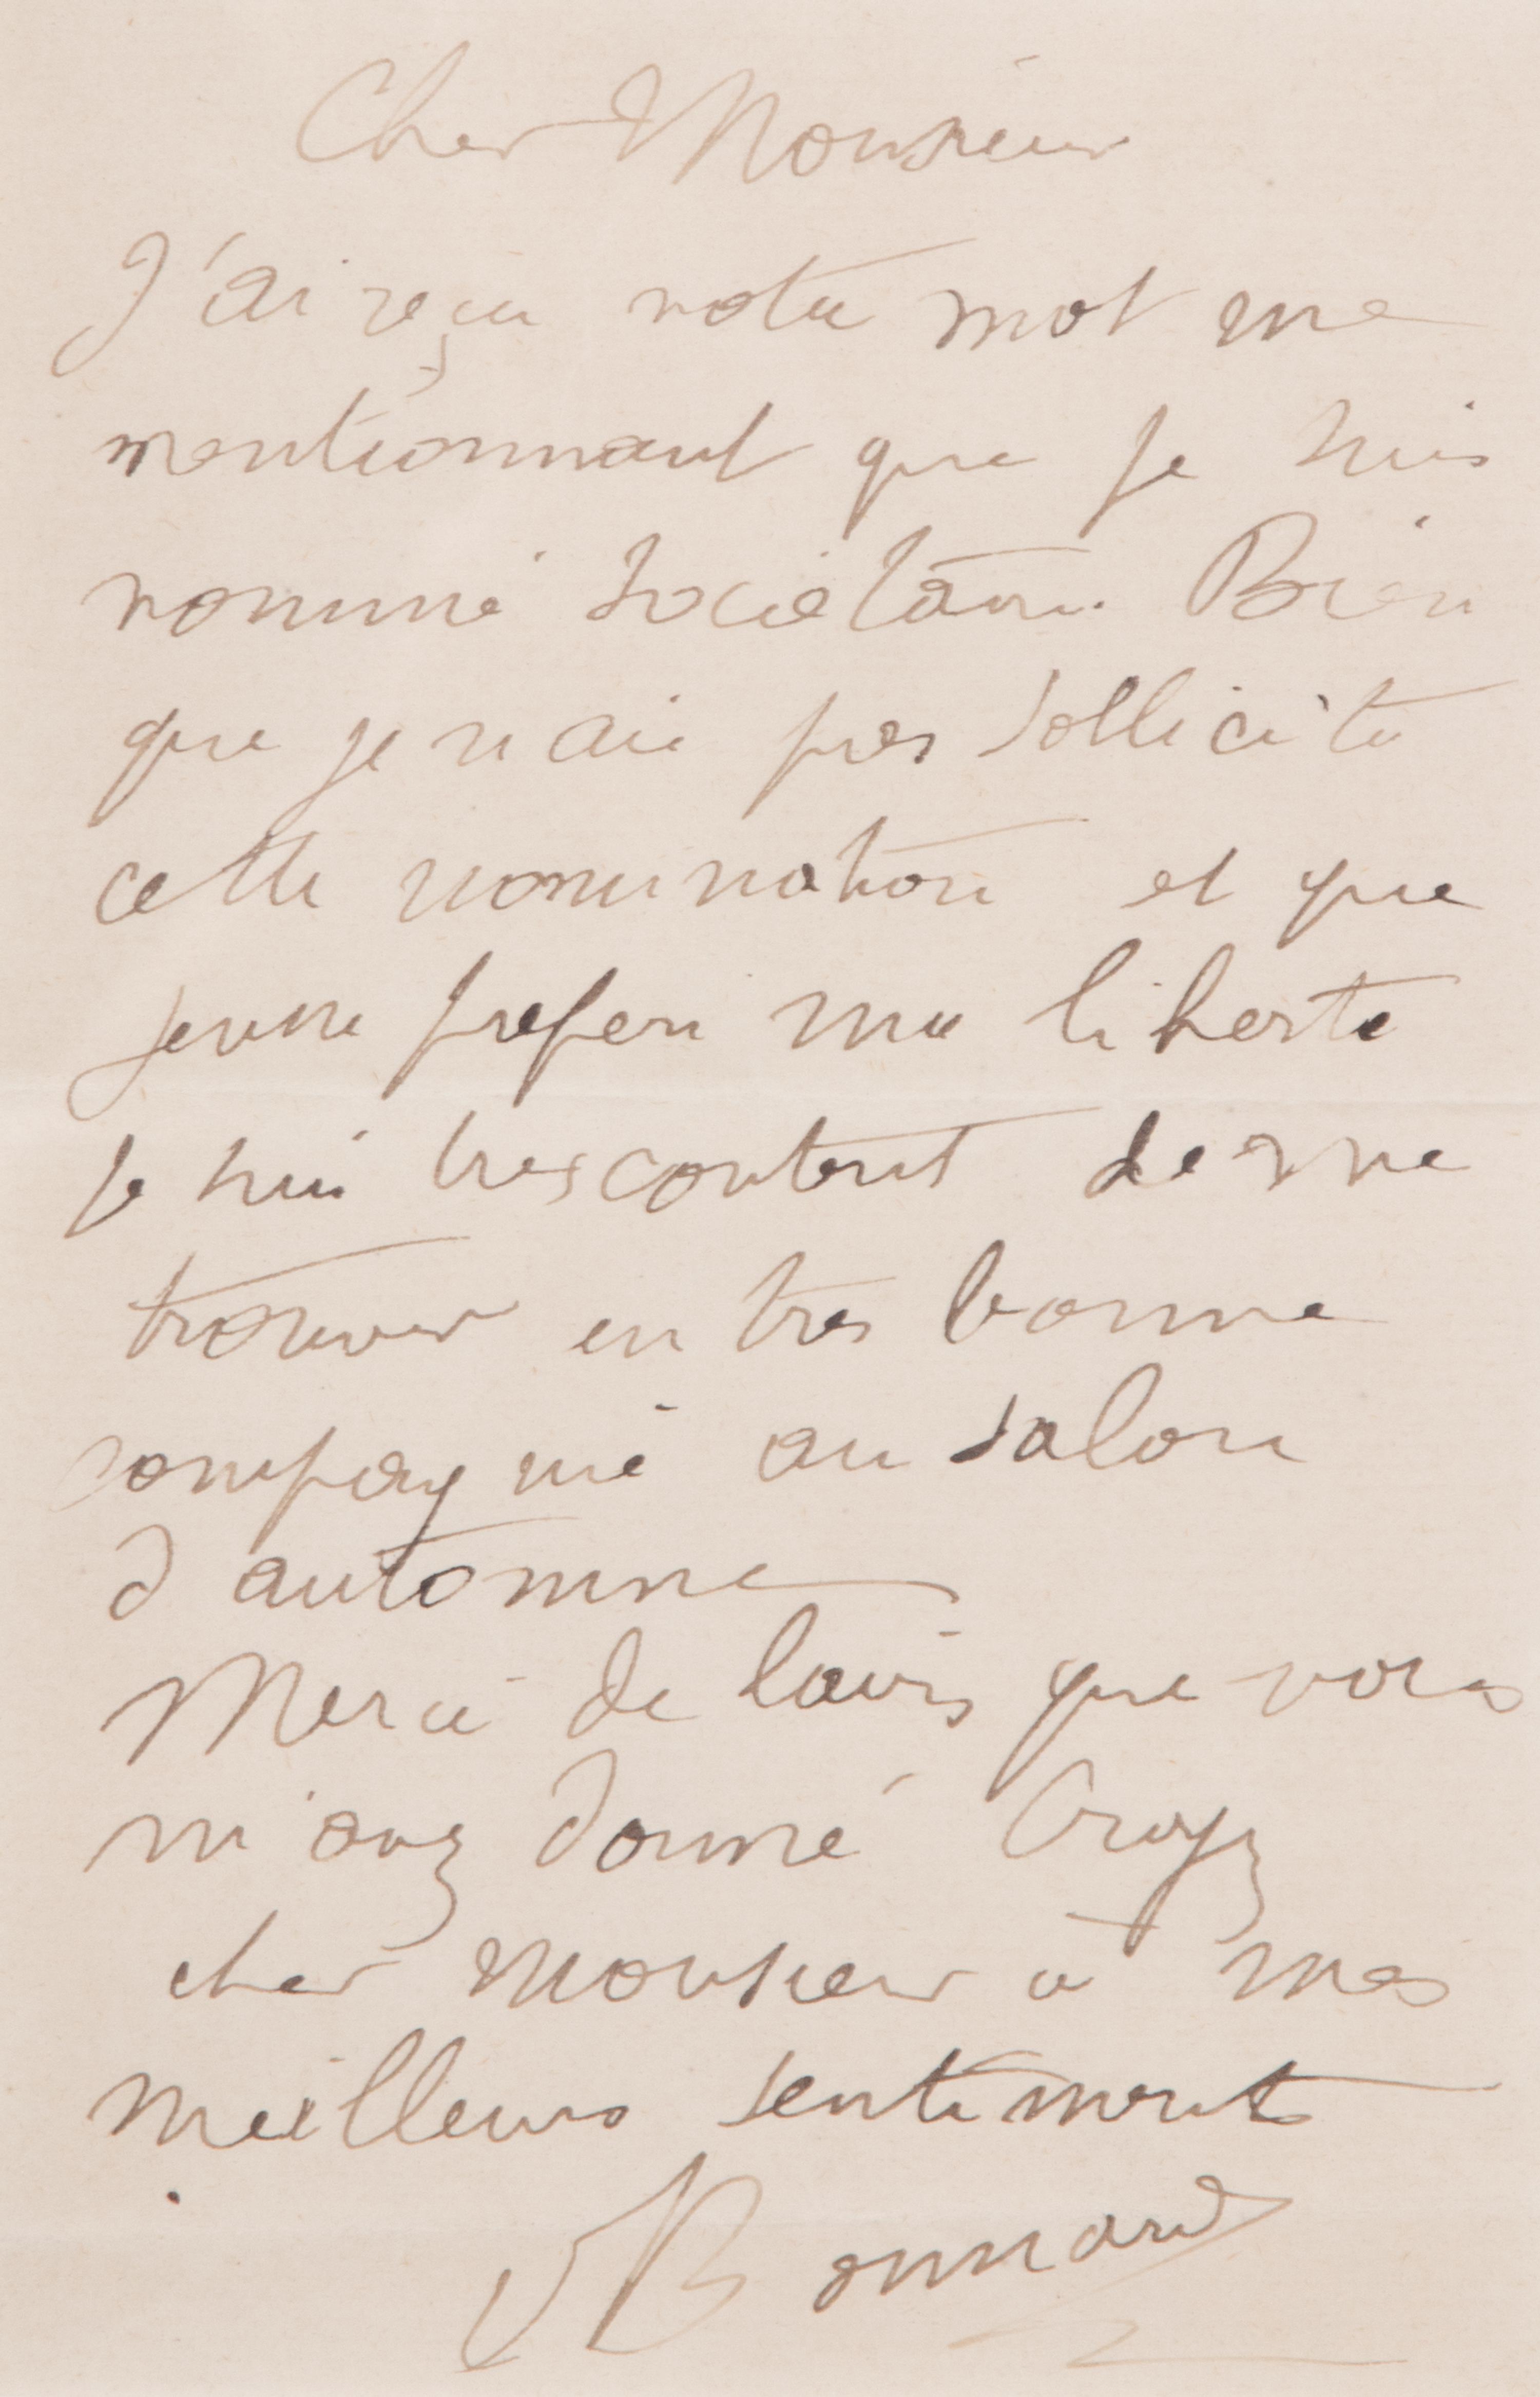 Cher Monsieur
J'ai reçu votre mot me
mentionnant que je suis
nommé sociétaire. Bien
que je n'aie pas sollicité
cette nomination et que
jeune préféré ma liberté
je suis tres content de me
trouver en tres bonne
compagnie au salon
d'automne
Merci de lavis que vous
m'avez donné Croyez
cher monsieur à mes
meilleurs sentiments
Bonnard